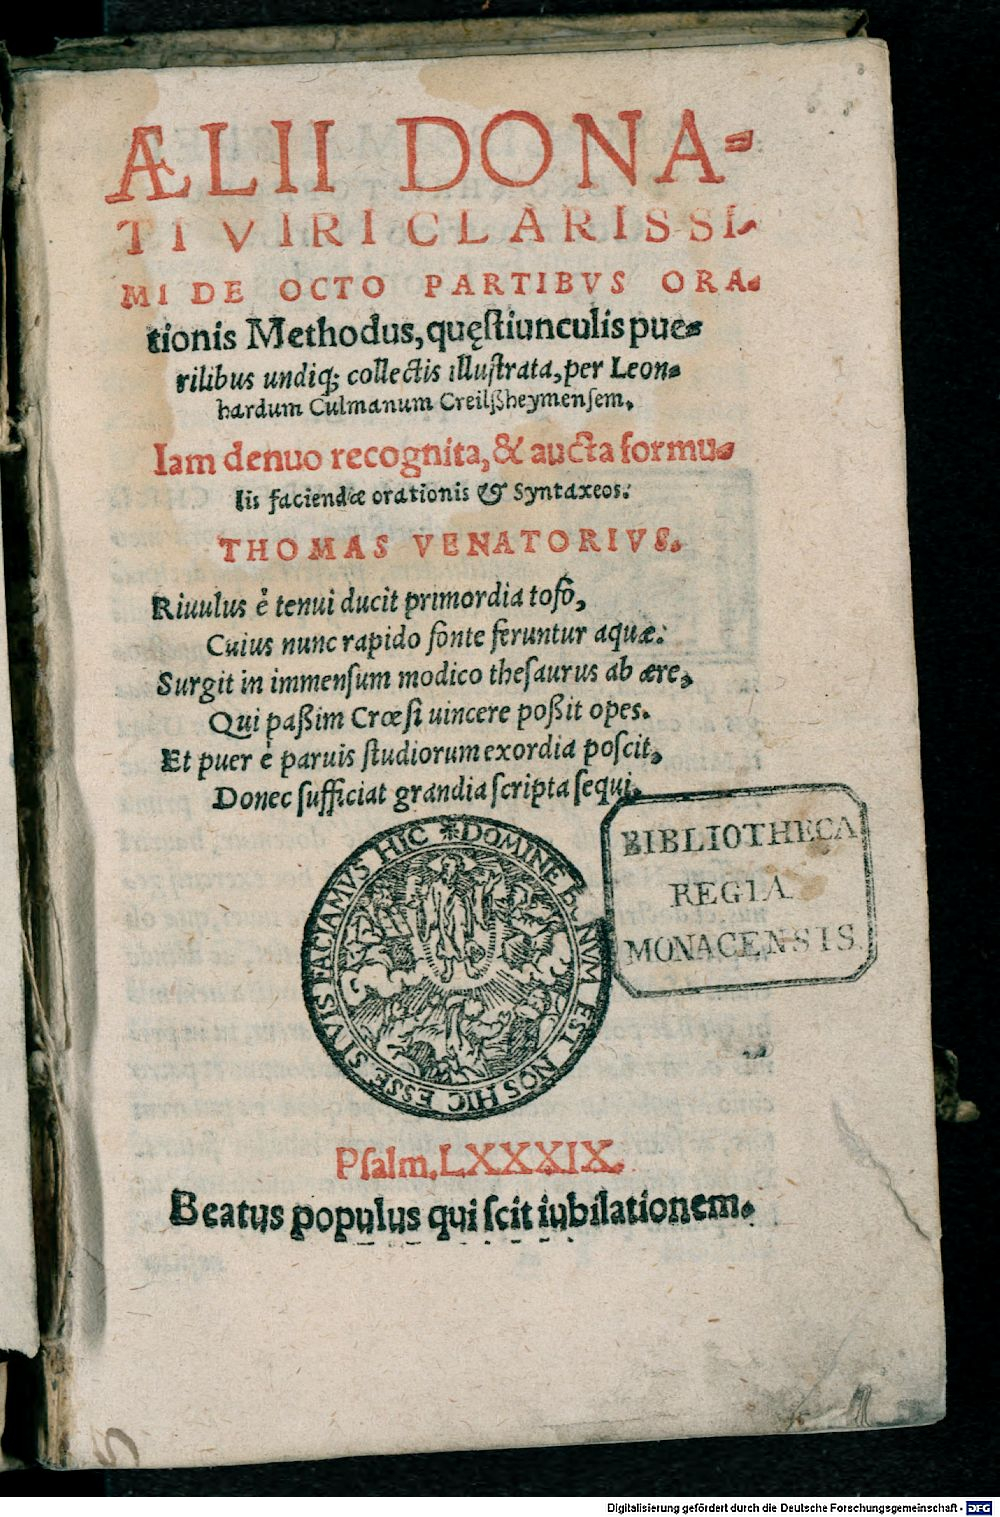 ÆLII DONA-
TI VIRI CLARISSI-
MI DE OCTO PARTIBVS ORA-
tionis Methodus, quęſtiunculis pue-
rilibus undiq; collectis illuſtrata, per Leon-
hardum Culmanum Creilßheymenſem.
Iam denuo recognita, & aucta formu-
lis faciendæ orationis & Syntaxeos.
THOMAS VENATORIVS.
Riuulus è tenui ducit primordia tofo,
Cuius nunc rapido fonte feruntur aquæ:
Surgit in immenſum modico theſaurus ab ære,
Qui paßim Crœſi uincere poßit opes.
Et puer è paruis ſtudiorum exordia poſcit,
Donec ſufficiat grandia ſcripta ſequi.
DOMINE BONVM EST NOS HIC ESSE SI VIS FACIAMVS HIC
BIBLIOTHECA
REGIA
MONACENSIS
Pſalm. LXXXIX.
Beatus populus qui ſcit iubilationem.
Digitalisierung gefördert durch die Deutsche Forschungsgemeinschaft - DFG